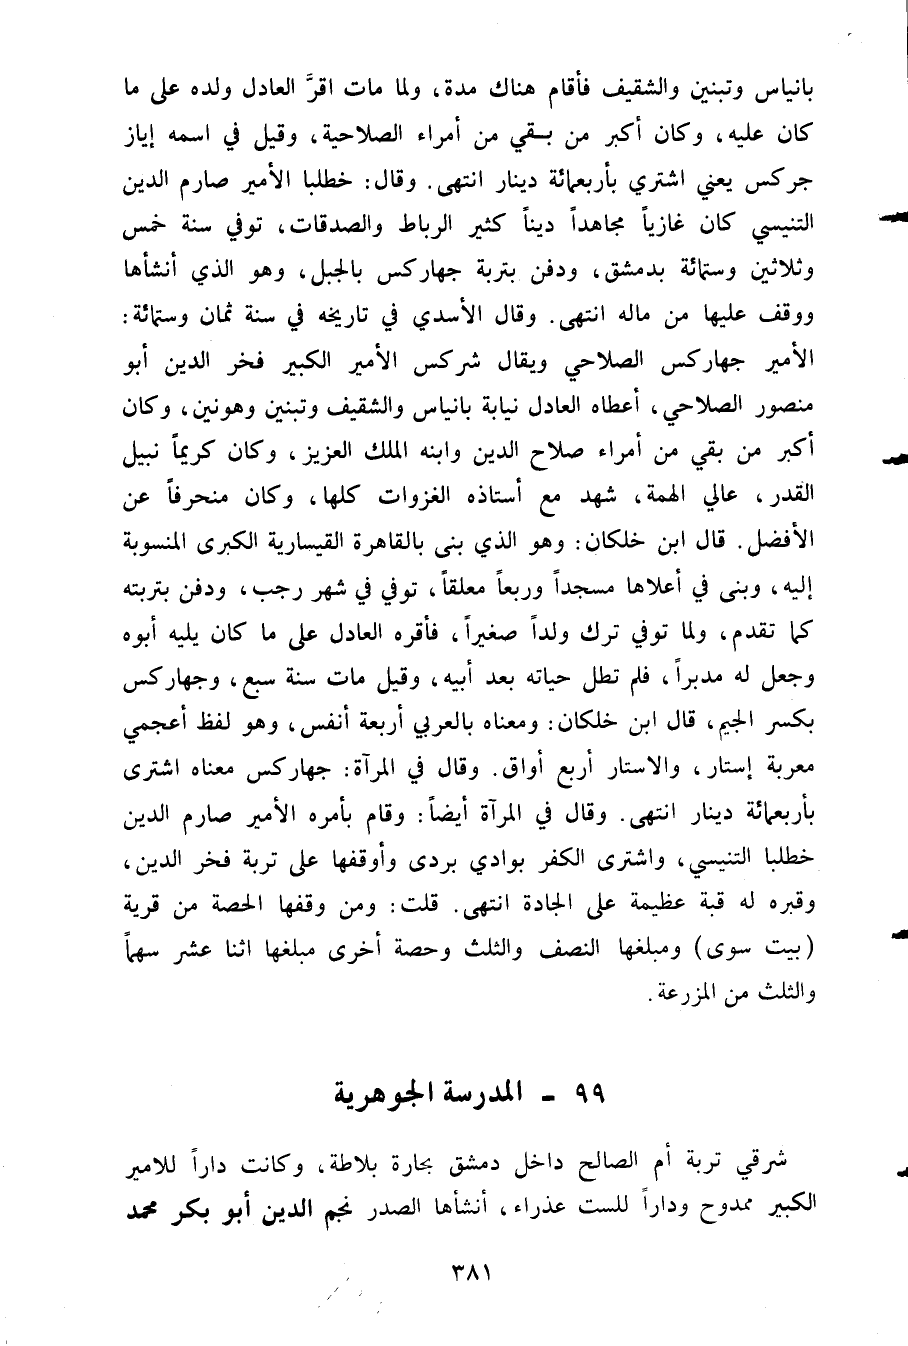 بانياس وتبنين والشقيف فأقام هناك مدة، ولما مات اقرَّ العادل ولده على ما
كان عليه، وكان أكبر من بـقي من أمراء الصلاحية، وقيل في اسمه إياز
جركس يعني اشتري بأربعمائة دينار انتهى. وقال: خطلبا الأمير صارم الدين
التنيسي كان غازياً مجاهداً ديناً كثير الرباط والصدقات، توفي سنة خمس
وثلاثين وستمائة بدمشق، ودفن بتربة جهاركس بالجبل، وهو الذي أنشأها
ووقف عليها من ماله انتهى. وقال الأسدي في تاريخه في سنة ثمان وستمائة:
الأمير جهاركس الصلاحي ويقال شركس الأمير الكبير فخر الدين أبو
منصور الصلاحي، أعطاه العادل نيابة بانياس والشقيف وتبنين وهونين، وكان
أكبر من بقي من أمراء صلاح الدين وابنه الملك العزيز، وكان كريماً نبيل
القدر، عالي الهمة، شهد مع أستاذه الغزوات كلها، وكان منحرفاً عن
الأفضل. قال ابن خلكان: وهو الذي بنى بالقاهرة القيسارية الكبرى المنسوبة
إليه، وبنى في أعلاها مسجداً وربعاً معلقاً، توفي في شهر رجب، ودفن بتربته
كما تقدم، ولما توفي ترك ولداً صغيراً، فأقره العادل على ما كان يليه أبوه
وجعل له مدبراً، فلم تطل حياته بعد أبيه، وقيل مات سنة سبع، وجهاركس
بكسر الجيم، قال ابن خلكان: ومعناه بالعربي أربعة أنفس، وهو لفظ أعجمي
معربة إستار، والاستار أربع أواق. وقال في المرآة: جهاركس معناه اشترى
بأربعمائة دينار انتهى. وقال في المرآة أيضاً: وقام بأمره الأمير صارم الدين
خطلبا التنيسي، واشترى الكفر بوادي بردى وأوقفها على تربة فخر الدين،
وقبره له قبة عظيمة على الجادة انتهى. قلت: ومن وقفها الحصة من قرية
(بيت سوى) ومبلغها النصف والثلث وحصة أخرى مبلغها اثنا عشر سهماً
والثلث من المزرعة.
٩٩ - المدرسة الجوهرية
شرقي تربة أم الصالح داخل دمشق بحارة بلاطة، وكانت داراً للامير
الكبير ممدوح وداراً للست عذراء، أنشأها الصدر نجم الدين أبو بكر محمد
٣٨١